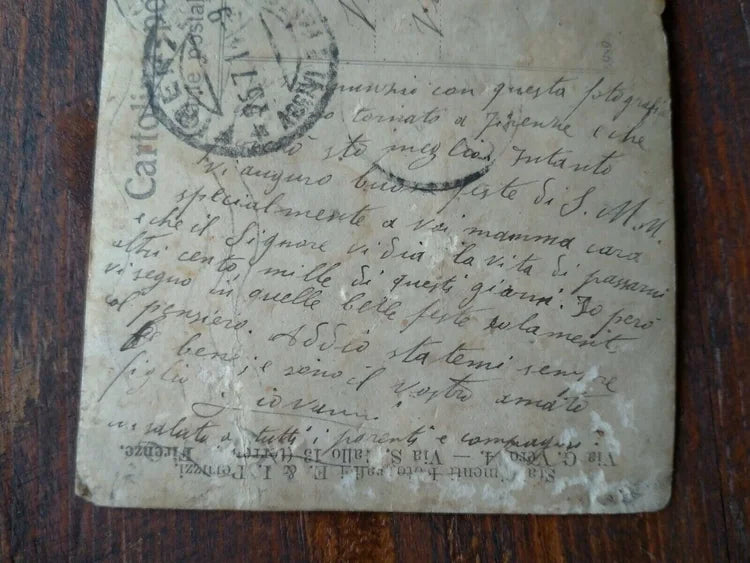 Cartolina
carte postale
Arrivi
con questa fotografia
tornato a Firenze e che
sto meglio. Intanto
vi auguro buone feste di S. M. M.
specialmente a voi mamma cara
e che il Signore vi dia la vita di passarni
altri cento, mille di questi giorni. Io però
vi seguo in quelle belle feste solamente
col pensiero. Addio statemi sempre
bene; e sono il vostro amato
figlio Giovanni
salato a tutti i parenti e compagni
Fotografici F. & I. Peruzzi.
Via S. Gallo 13 Firenze.